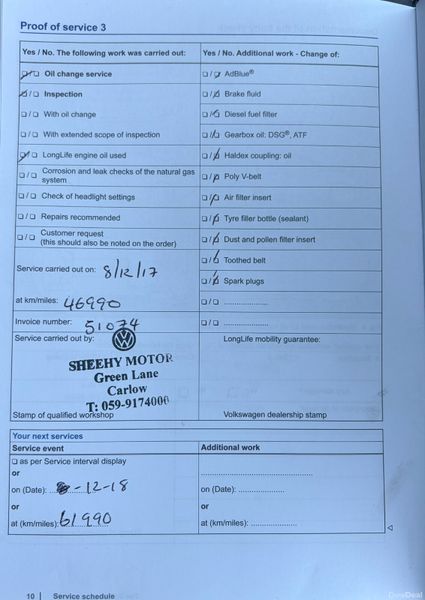 Proof of service 3
Yes / No. The following work was carried out: Yes / No. Additional work - Change of:
☑/☐ Oil change service ☐/☑ AdBlue®
☑/☐ Inspection ☐/☑ Brake fluid
☐/☐ With oil change ☐/☑ Diesel fuel filter
☐/☐ With extended scope of inspection ☐/☑ Gearbox oil: DSG®, ATF
☑/☐ LongLife engine oil used ☐/☑ Haldex coupling: oil
☐/☐ Corrosion and leak checks of the natural gas system ☐/☑ Poly V-belt
☐/☐ Check of headlight settings ☐/☑ Air filter insert
☐/☐ Repairs recommended ☐/☑ Tyre filler bottle (sealant)
☐/☐ Customer request
(this should also be noted on the order) ☐/☑ Dust and pollen filter insert
☐/☑ Toothed belt
Service carried out on: 8/12/17 ☐/☑ Spark plugs
at km/miles: 46990 ☐/☐ ....................
Invoice number: 51074 ☐/☐ ....................
Service carried out by: LongLife mobility guarantee:
SHEEHY MOTOR
Green Lane
Carlow
T: 059-9174000
Stamp of qualified workshop Volkswagen dealership stamp
Your next services
Service event Additional work
☐ as per Service interval display
or
on (Date): 8-12-18 on (Date): ....................
or or
at (km/miles): 61990 at (km/miles): ....................
10 | Service schedule
DoneDeal